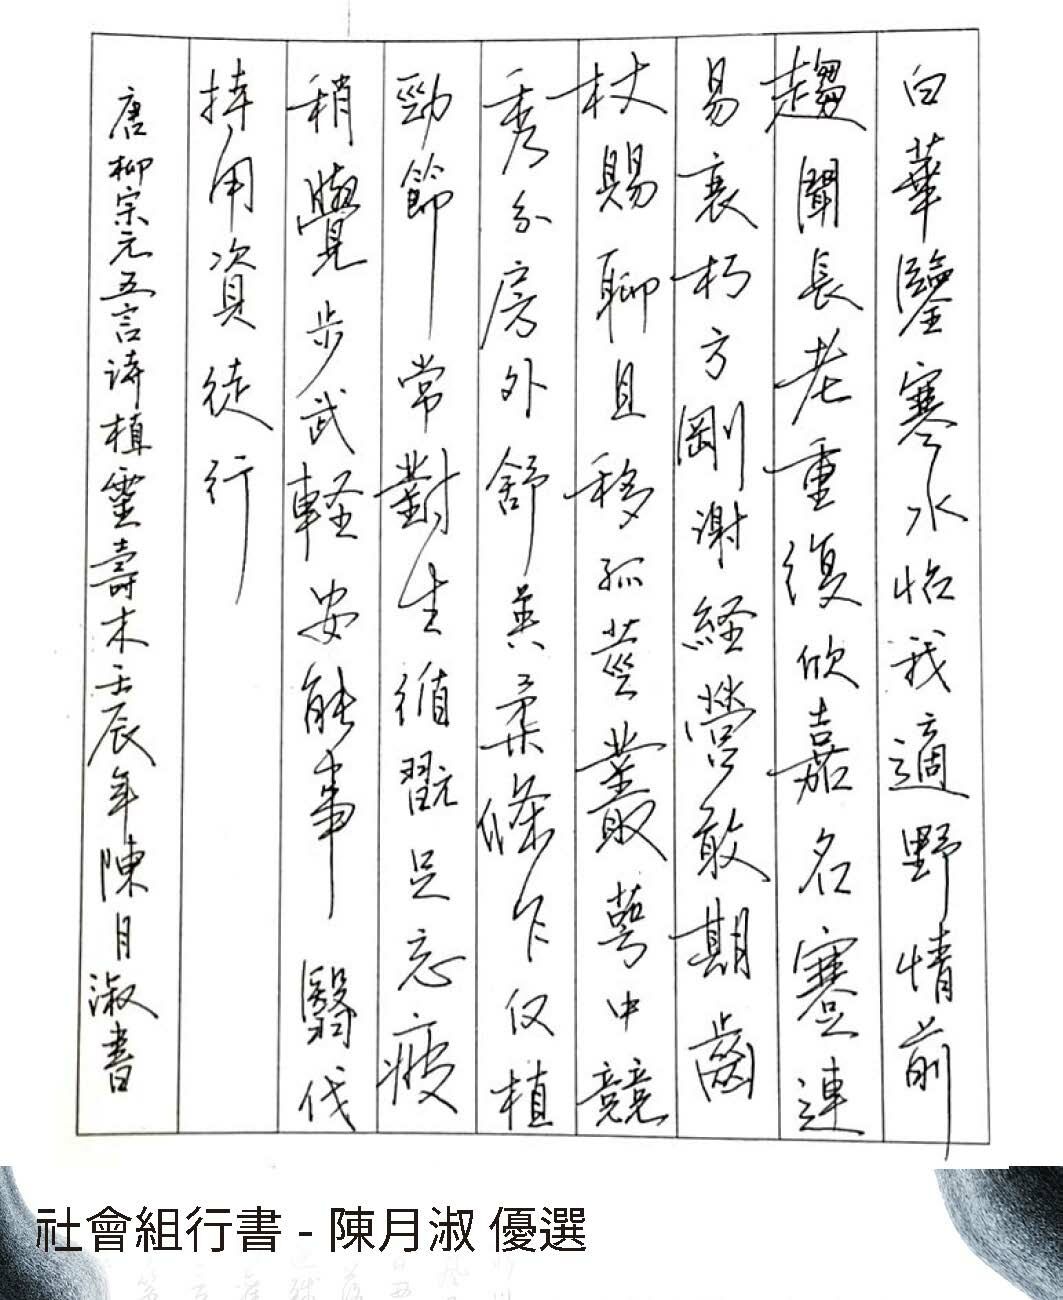 白華鑒寒水怡我適野情前
趨聞長老重復欣嘉名蹇連
易衰朽方剛謝経營敢期齒
杖賜聊且移孤莖叢萼中競
秀分房外舒英柔條乍仅植
勁節常對生循翫足忘疲
稍覺步武軽安能事翳伐
持用資徒行
唐柳宗元五言詩植靈壽木壬辰年陳月淑書
社會組行書 - 陳月淑 優選